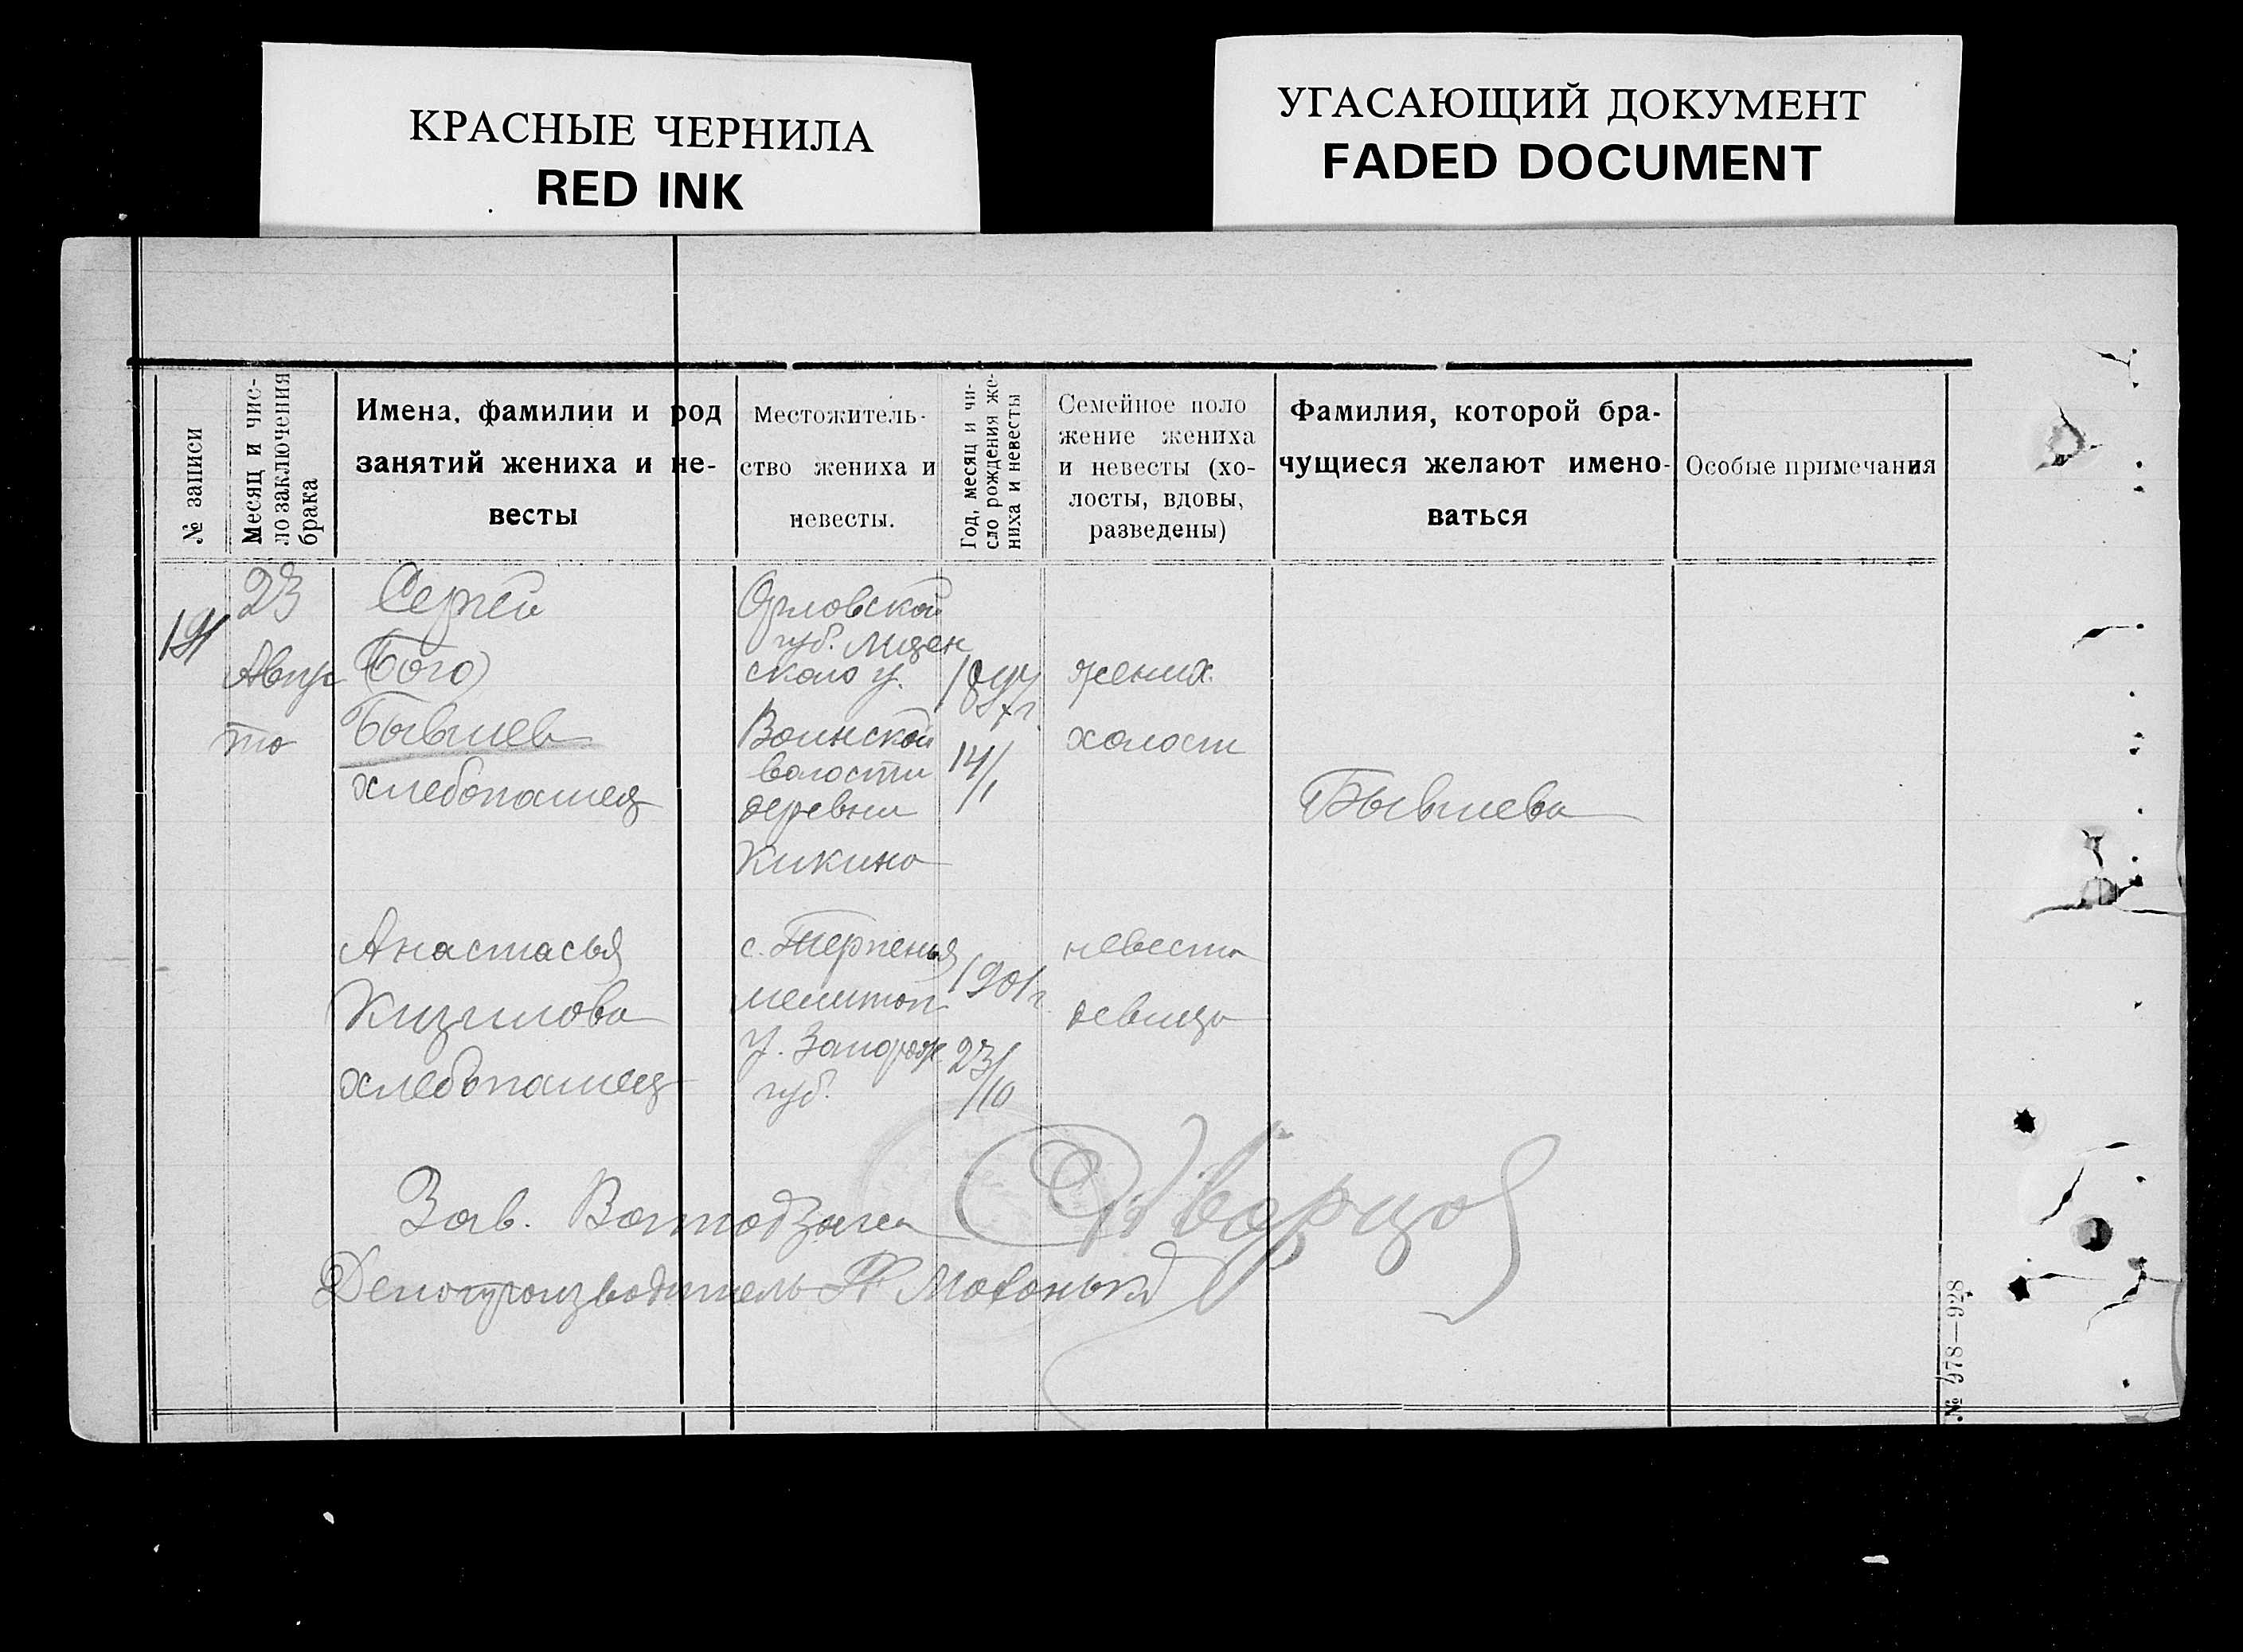 КРАСНЫЕ ЧЕРНИЛА
RED INK
УГАСАЮЩИЙ ДОКУМЕНТ
FADED DOCUMENT
№ записи
Месяц и чис-
ло заключения
брака
Имена, фамилии и род
занятий жениха и не-
весты
Местожитель-
ство жениха и
невесты.
Год, месяц и чи-
сло рождения же-
ниха и невесты
Семейное поло
жение жениха
и невесты (хо-
лосты, вдовы,
разведены)
Фамилия, которой бра-
чущиеся желают имено-
ваться
Особые примечания
191
23
Авгус
та
Сергей
(Бого)
Бывшев
хлебопашец
Орловской
губ. Мцен
ского у.
Воинской
волости
деревни
Кикино
1897 г.
14/1
жених
холост
Бывшева
Анастасья
Кизилова
хлебопашец
с. Терпенья
мелитоп
у. Запорож
губ.
1901 г
23/10
невеста
девица
Зав.
Дворцов
Делопроизводитель
№ 978—928